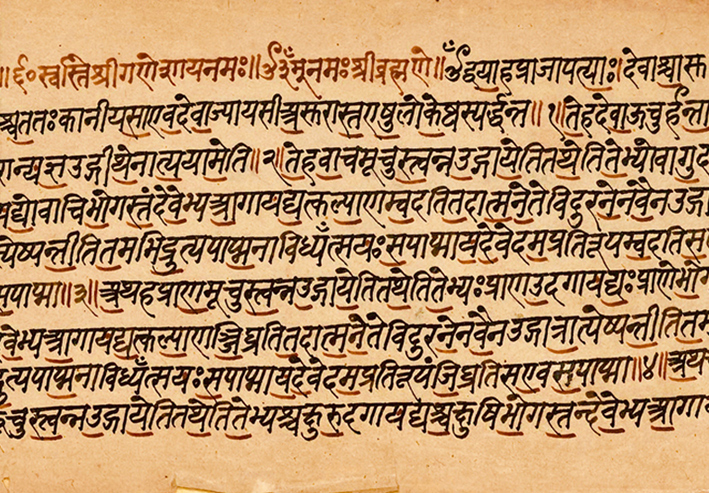 ॥६०स्वस्तिश्रीगणेशायनमः॥ॐनमःश्रीब्रह्मणे॥ॐद्वयाहप्राजापत्याः।देवाश्चासु
श्चततःकानीयसाएवदेवाज्यायसाअसुरास्तएषुलोकेष्वस्पर्द्धन्त॥१॥तेहदेवाऊचुर्हन्ता
रान्यज्ञउद्गीथेनात्ययामेति॥२॥तेहवाचमूचुस्त्वन्नउद्गायेतितथेतितेभ्योवागुद
यद्योवाचिभोगस्तंदेवेभ्यआगायद्यत्कल्याणम्वदतितदात्मनेतेविदुरनेनवैनउद्गा
त्येष्यन्तीतितमभिद्रुत्यपाप्मनाविध्यँत्सयःसपाप्मायदेवेदमप्रतिरूपम्वदतिसए
सपाप्मा॥३॥अथहप्राणमूचुस्त्वन्नउद्गायेतितथेतितेभ्यःप्राणउदगायद्यःप्राणेभोग
देवेभ्यआगायद्यत्कल्याणञ्जिघ्रतितदात्मनेतेविदुरनेनवैनउद्गात्रात्येष्यन्तीतितम
द्रुत्यपाप्मनाविध्यँत्सयःसपाप्मायदेवेदमप्रतिरूपंजिघ्रतिसएवसपाप्मा॥४॥अथच
रूचुस्त्वन्नउद्गायेतितथेतितेभ्यश्चक्षुरुदगायद्यश्चक्षुषिभोगस्तन्देवेभ्यआगाय